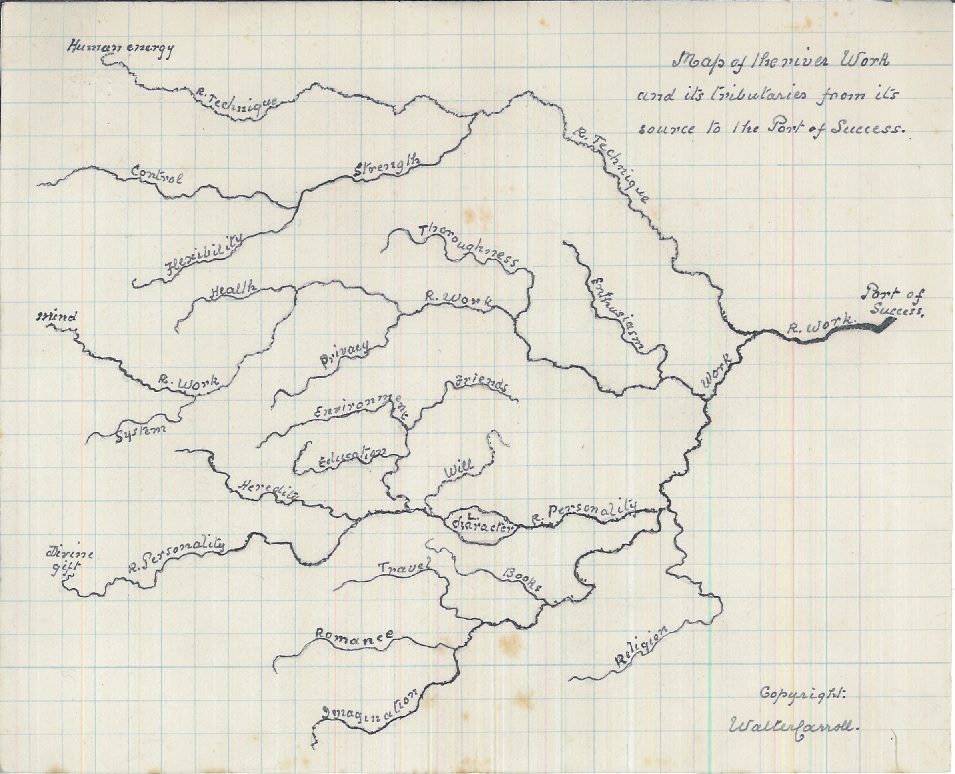 Human energy
Map of the river Work
and its tributaries from its
source to the Port of Success.
R. Technique
R. Technique
Control
Strength
Flexibility
Thoroughness
Health
R. Work
Enthusiasm
Port of
Success.
R. Work.
Mind
Privacy
R. Work
Work
System
Environment
Friends
Education
Will
Heredity
L.
Character
R. Personality
Divine
gift
R. Personality
Travel
Books
Romance
Religion
Imagination
Copyright:
Walter Carroll.